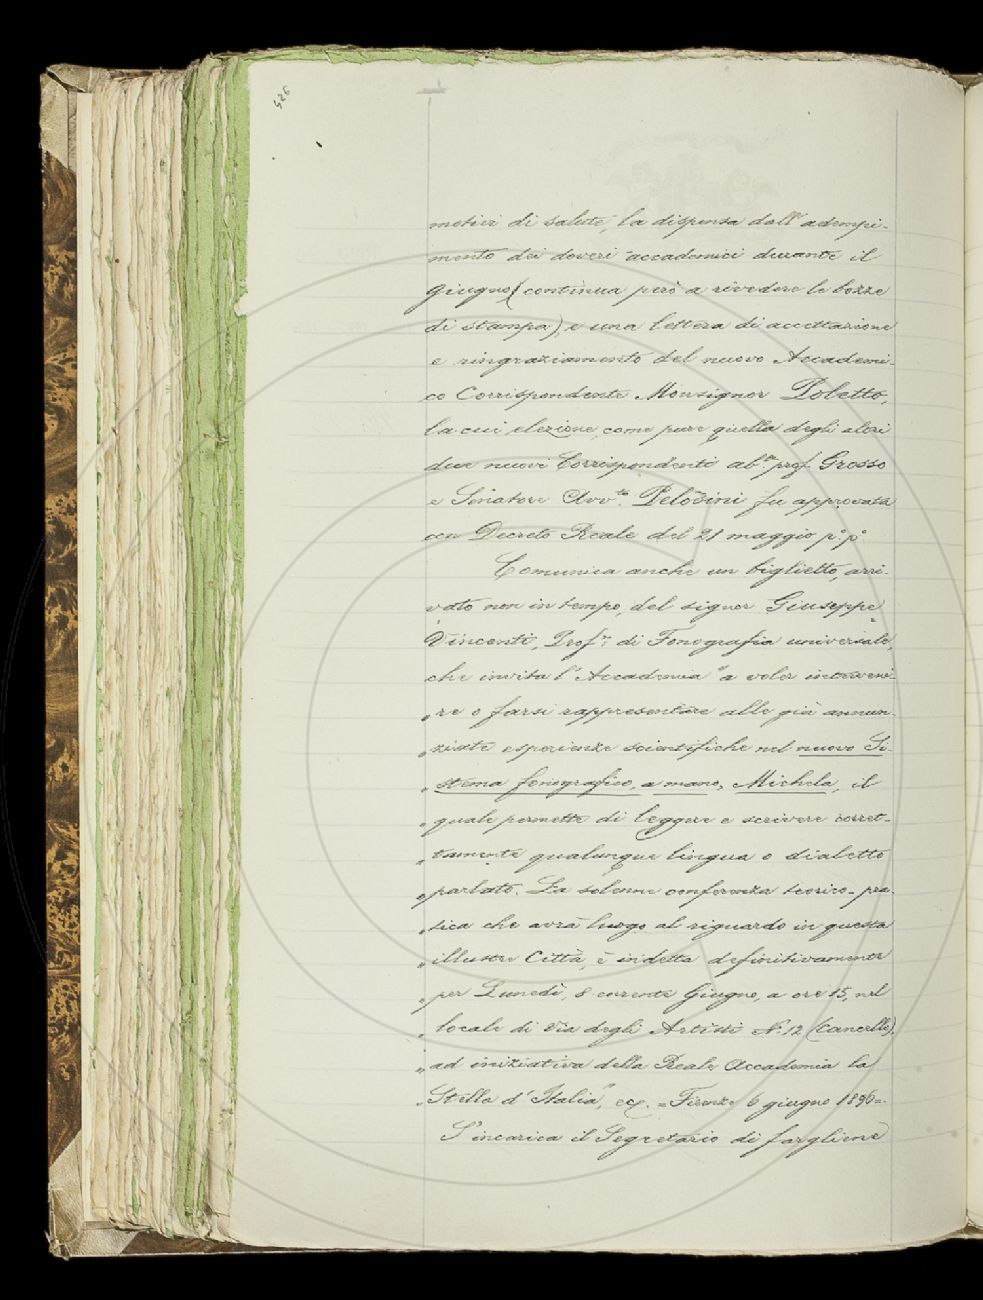 426
motivi di salute, la dispensa dall'adempi-
mento dei doveri accademici durante il
giugno (continua però a rivedere le bozze
di stampa), e una lettera di accettazione
e ringraziamento del nuovo Accademi-
co Corrispondente Monsignor Poletto,
la cui elezione, come pure quella degli altri
due nuovi Corrispondenti ab.e prof. Grosso
e Senatore Avv.to Pelosini fu approvata
con Decreto Reale del 21 maggio p.o p.o
Comunica anche un biglietto, arri-
vato non in tempo, del signor Giuseppe
Vincenti, Prof.re di Fonografia universale,
che invita l'Accademia "a voler interveni-
"re o farsi rappresentare alle già annun-
"ziate esperienze scientifiche nel nuovo Si-
"stema fonografico, a mano, Michela, il
"quale permette di leggere e scrivere corret-
"tamente qualunque lingua o dialetto
"parlato. La solenne conferenza teorico-pra-
"tica che avrà luogo al riguardo in questa
"illustre Città, è indetta definitivamente
"per Lunedì, 8 corrente Giugno, a ore 15, nel
"locale di Via degli Artisti N.o 12 (Cancello),
"ad iniziativa della Reale Accademia la
"Stella d'Italia", ec. = Firenze 6 giugno 1896=.
S'incarica il Segretario di fargliene